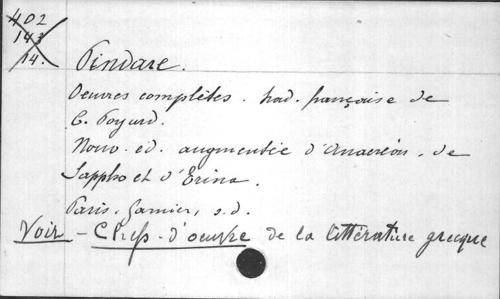 402
143
14.
Pindare.
Oeuvres complètes. trad. française de
C. Poyard.
Nouv. ed. augmentée d'Anacréon, de
Sappho et d'Erina.
Paris, Garnier, s.d.
Voir - Chefs-d'oeuvre de la littérature grecque